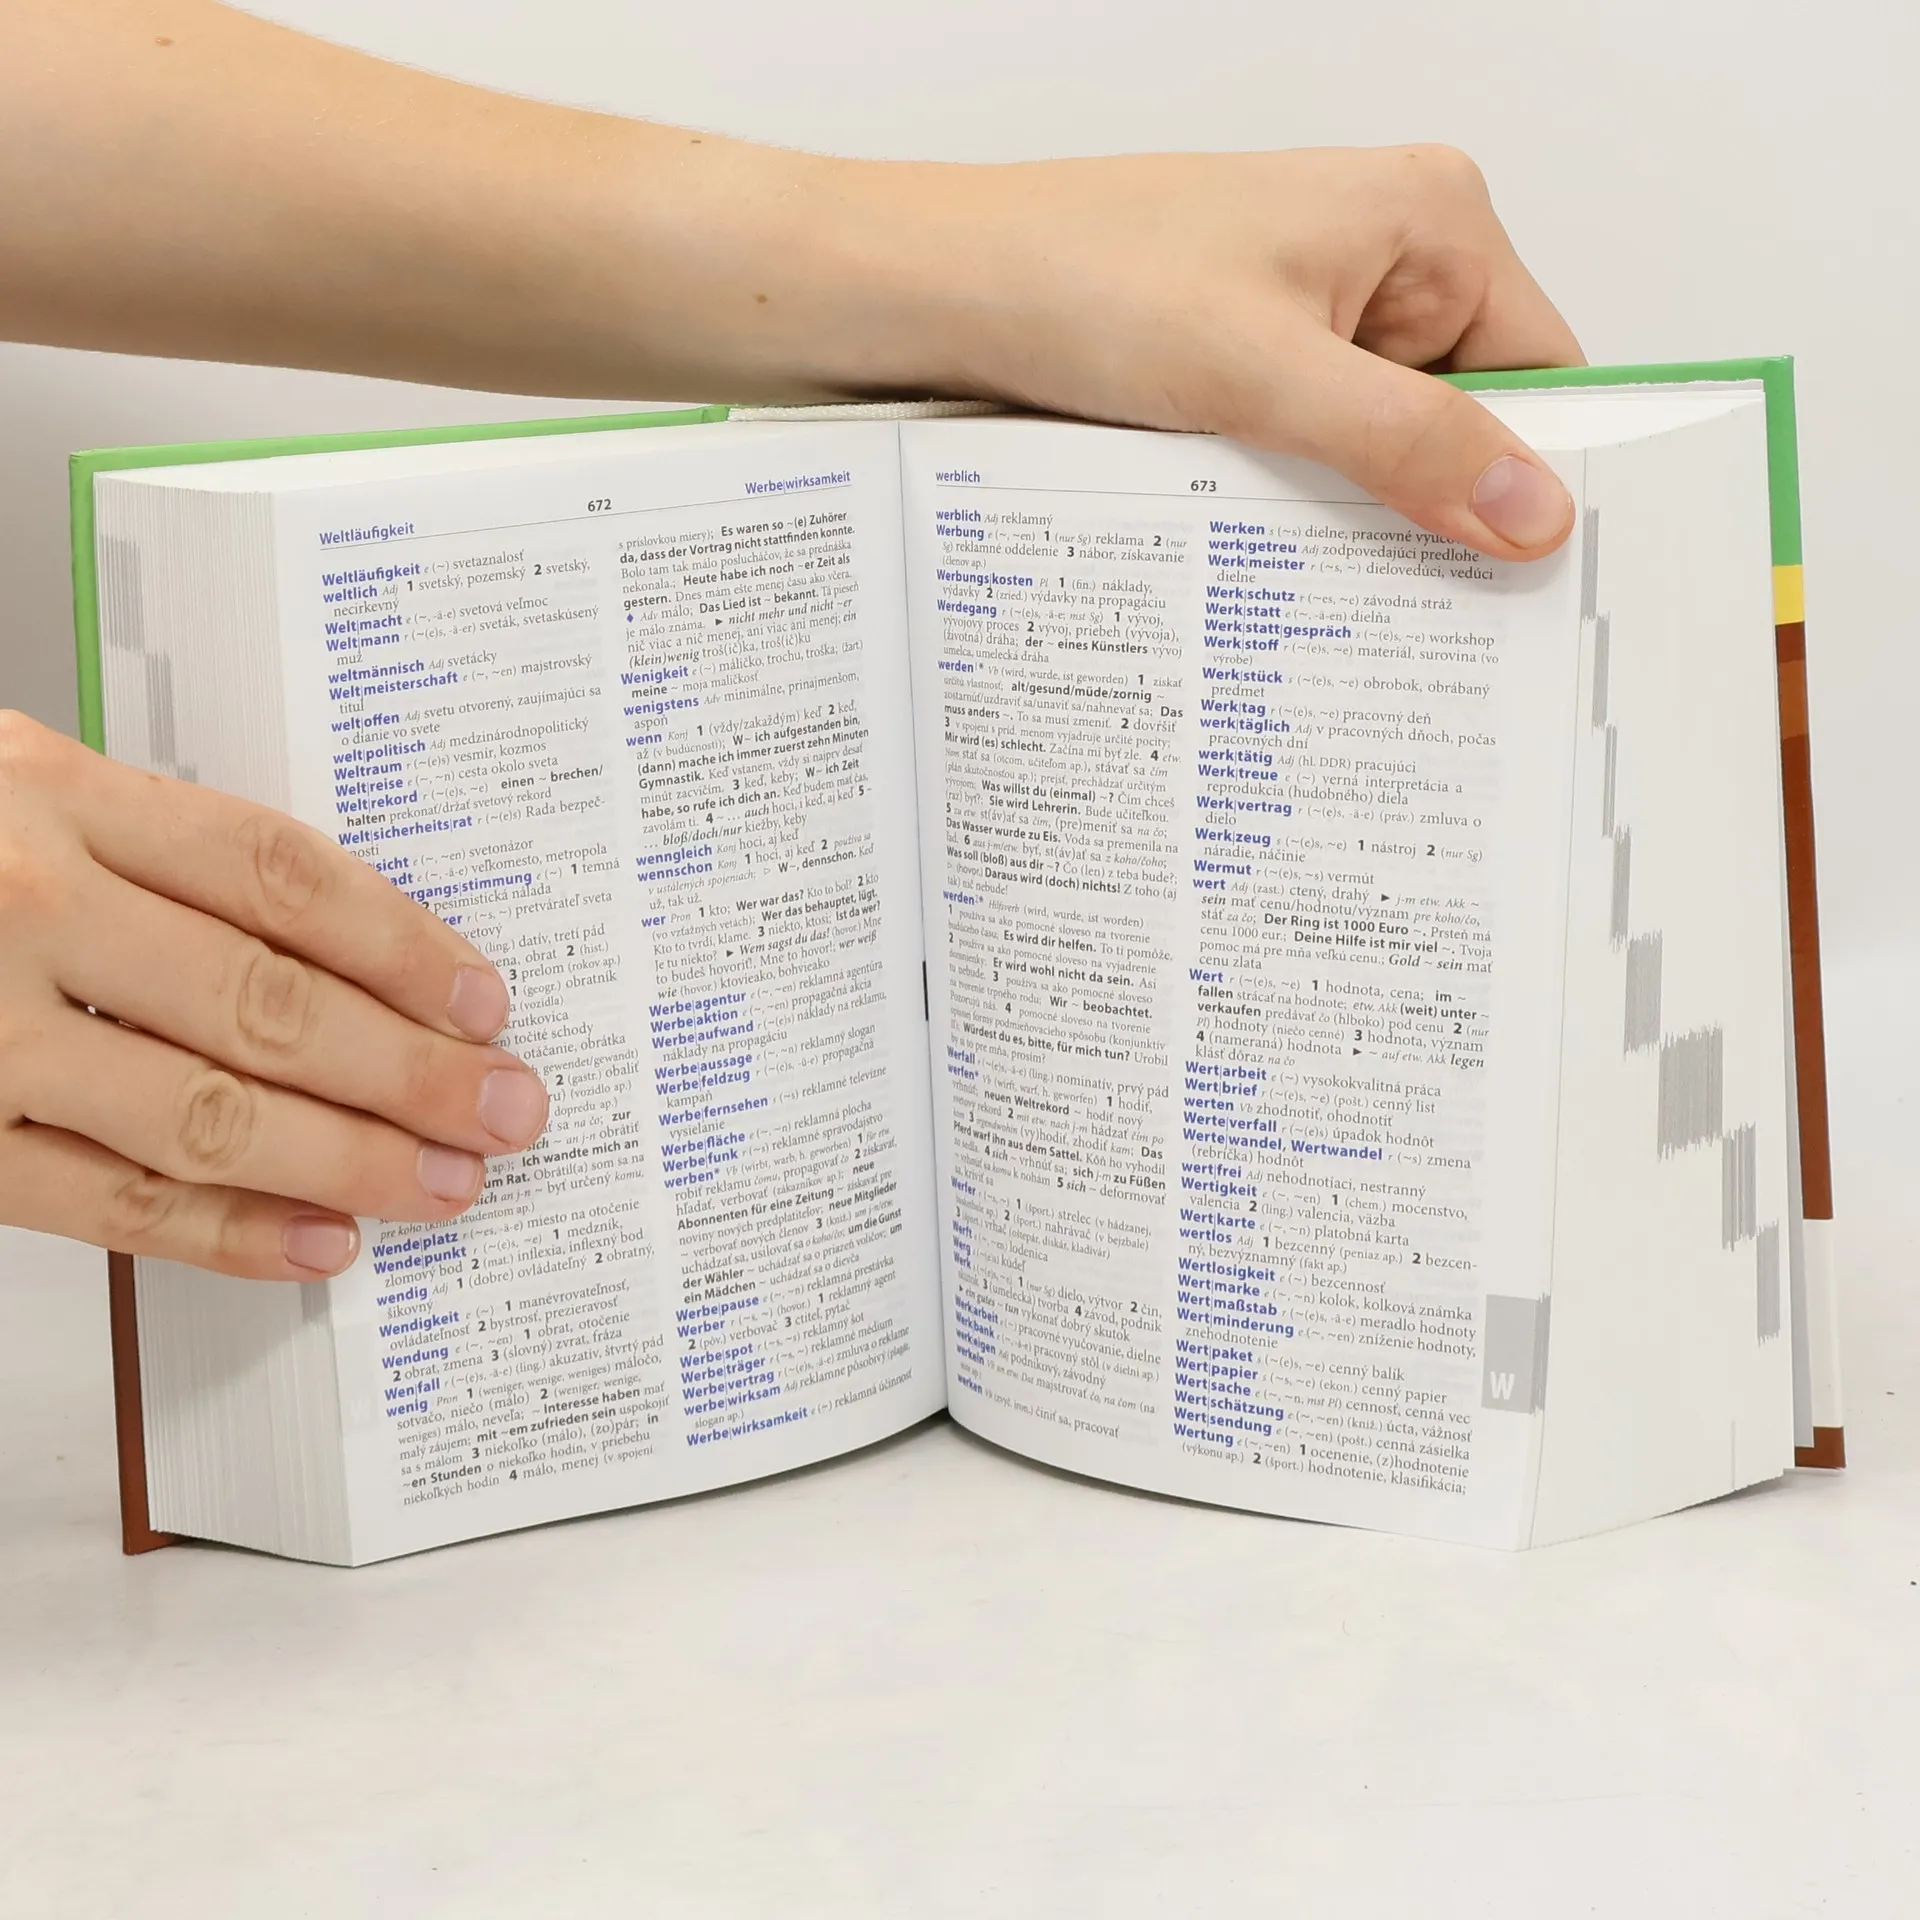 Weltläufigkeit
672
Werbe|wirksamkeit
Weltläufigkeit e (~) svetaznalosť
weltlich Adj 1 svetský, pozemský 2 svetský,
necirkevný
Welt|macht e (~, -ä-e) svetová veľmoc
Welt|mann r (~(e)s, -ä-er) sveták, svetaskúsený
muž
weltmännisch Adj svetácky
Welt|meisterschaft e (~, ~en) majstrovský
titul
welt|offen Adj svetu otvorený, zaujímajúci sa
o dianie vo svete
welt|politisch Adj medzinárodnopolitický
Weltraum r (~(e)s) vesmír, kozmos
Welt|reise e (~, ~n) cesta okolo sveta
Welt|rekord r (~(e)s, ~e) einen ~ brechen/
halten prekonať/držať svetový rekord
Welt|sicherheits|rat r (~(e)s) Rada bezpeč-
nosti
sicht e (~, ~en) svetonázor
adt e (~, -ä-e) veľkomesto, metropola
rgangs|stimmung e (~) 1 temná
2 pesimistická nálada
rer r (~s, ~) pretvárateľ sveta
svetový
(ling.) datív, tretí pád
mena, obrat 2 (hist.)
3 prelom (rokov ap.)
1 (geogr.) obratník
a (vozidla)
krutkovica
n) točité schody
otáčanie, obrátka
h. gewendet/gewandt)
2 (gastr.) obaliť
ru) (vozidlo ap.)
dopredu ap.)
ť sa na čo; zur
sich ~ an j-n obrátiť
ap.); Ich wandte mich an
um Rat. Obrátil(a) som sa na
sich an j-n ~ byť určený komu,
pre koho (kniha študentom ap.)
Wende|platz r (~es, -ä-e) miesto na otočenie
Wende|punkt r (~(e)s, ~e) 1 medzník,
zlomový bod 2 (mat.) inflexia, inflexný bod
wendig Adj 1 (dobre) ovládateľný 2 obratný,
šikovný
Wendigkeit e (~) 1 manévrovateľnosť,
ovládateľnosť 2 bystrosť, prezieravosť
Wendung e (~, ~en) 1 obrat, otočenie
2 obrat, zmena 3 (slovný) zvrat, fráza
Wen|fall r (~(e)s, -ä-e) (ling.) akuzatív, štvrtý pád
wenig Pron 1 (weniger, wenige, weniges) máločo,
sotvačo, niečo (málo) 2 (weniger, wenige,
weniges) málo, neveľa; ~ Interesse haben mať
malý záujem; mit ~em zufrieden sein uspokojiť
sa s málom 3 niekoľko (málo), (zo)pár; in
~en Stunden o niekoľko hodín, v priebehu
niekoľkých hodín 4 málo, menej (v spojení
s príslovkou miery); Es waren so ~(e) Zuhörer
da, dass der Vortrag nicht stattfinden konnte.
Bolo tam tak málo poslucháčov, že sa prednáška
nekonala.; Heute habe ich noch ~er Zeit als
gestern. Dnes mám ešte menej času ako včera.
♦ Adv málo; Das Lied ist ~ bekannt. Tá pieseň
je málo známa. ► nicht mehr und nicht ~er
nič viac a nič menej, ani viac ani menej; ein
(klein)wenig troš(ič)ka, troš(ič)ku
Wenigkeit e (~) máličko, trochu, troška; (žart.)
meine ~ moja maličkosť
wenigstens Adv minimálne, prinajmenšom,
aspoň
wenn Konj 1 (vždy/zakaždým) keď 2 keď,
až (v budúcnosti); W~ ich aufgestanden bin,
(dann) mache ich immer zuerst zehn Minuten
Gymnastik. Keď vstanem, vždy si najprv desať
minút zacvičím. 3 keď, keby; W~ ich Zeit
habe, so rufe ich dich an. Keď budem mať čas,
zavolám ti. 4 ~ … auch hoci, i keď, aj keď 5 ~
… bloß/doch/nur kiežby, keby
wenngleich Konj hoci, aj keď
wennschon Konj 1 hoci, aj keď 2 používa sa
v ustálených spojeniach; ▷ W~, dennschon. Keď
už, tak už.
wer Pron 1 kto; Wer war das? Kto to bol? 2 kto
(vo vzťažných vetách); Wer das behauptet, lügt.
Kto to tvrdí, klame. 3 niekto, ktosi; Ist da wer?
Je tu niekto? ► Wem sagst du das! (hovor.) Mne
to budeš hovoriť!, Mne to hovor!; wer weiß
wie (hovor.) ktovieako, bohvieako
Werbe|agentur e (~, ~en) reklamná agentúra
Werbe|aktion e (~, ~en) propagačná akcia
Werbe|aufwand r (~(e)s) náklady na reklamu,
náklady na propagáciu
Werbe|aussage e (~, ~n) reklamný slogan
Werbe|feldzug r (~(e)s, -ü-e) propagačná
kampaň
Werbe|fernsehen s (~s) reklamné televízne
vysielanie
Werbe|fläche e (~, ~n) reklamná plocha
Werbe|funk r (~s) reklamné spravodajstvo
werben* Vb (wirbt, warb, h. geworben) 1 für etw.
robiť reklamu čomu, propagovať čo 2 získavať,
hľadať, verbovať (zákazníkov ap.); neue
Abonnenten für eine Zeitung ~ získavať pre
noviny nových predplatiteľov; neue Mitglieder
~ verbovať nových členov 3 (kniž.) um j-n/etw.
uchádzať sa, usilovať sa o koho/čo; um die Gunst
der Wähler ~ uchádzať sa o priazeň voličov; um
ein Mädchen ~ uchádzať sa o dievča
Werbe|pause e (~, ~n) reklamná prestávka
Werber r (~s, ~) (hovor.) 1 reklamný agent
2 (pôv.) verbovač 3 ctiteľ, pytač
Werbe|spot r (~s, ~s) reklamný šot
Werbe|träger r (~s, ~) reklamné médium
Werbe|vertrag r (~(e)s, -ä-e) zmluva o reklame
werbe|wirksam Adj reklamne pôsobivý (plagát,
slogan ap.)
Werbe|wirksamkeit e (~) reklamná účinnosť
werblich
673
werblich Adj reklamný
Werbung e (~, ~en) 1 (nur Sg) reklama 2 (nur
Sg) reklamné oddelenie 3 nábor, získavanie
(členov ap.)
Werbungs|kosten Pl 1 (fin.) náklady,
výdavky 2 (zried.) výdavky na propagáciu
Werdegang r (~(e)s, -ä-e; mst Sg) 1 vývoj,
vývojový proces 2 vývoj, priebeh (vývoja),
(životná) dráha; der ~ eines Künstlers vývoj
umelca, umelecká dráha
werden¹* Vb (wird, wurde, ist geworden) 1 získať
určitú vlastnosť; alt/gesund/müde/zornig ~
zostarnúť/uzdraviť sa/unaviť sa/nahnevať sa; Das
muss anders ~. To sa musí zmeniť. 2 dovŕšiť
3 v spojení s príd. menom vyjadruje určité pocity;
Mir wird (es) schlecht. Začína mi byť zle. 4 etw.
Nom stať sa (otcom, učiteľom ap.), stávať sa čím
(plán skutočnosťou ap.); prejsť, prechádzať určitým
vývojom; Was willst du (einmal) ~? Čím chceš
(raz) byť?; Sie wird Lehrerin. Bude učiteľkou.
5 zu etw. st(áv)ať sa čím, (pre)meniť sa na čo;
Das Wasser wurde zu Eis. Voda sa premenila na
ľad. 6 aus j-m/etw. byť, st(áv)ať sa z koho/čoho;
Was soll (bloß) aus dir ~? Čo (len) z teba bude?;
▷ (hovor.) Daraus wird (doch) nichts! Z toho (aj
tak) nič nebude!
werden²* Hilfsverb (wird, wurde, ist worden)
1 používa sa ako pomocné sloveso na tvorenie
budúceho času; Es wird dir helfen. To ti pomôže.
2 používa sa ako pomocné sloveso na vyjadrenie
domnienky; Er wird wohl nicht da sein. Asi
tu nebude. 3 používa sa ako pomocné sloveso
na tvorenie trpného rodu; Wir ~ beobachtet.
Pozorujú nás. 4 pomocné sloveso na tvorenie
opisnej formy podmieňovacieho spôsobu (konjunktív
II); Würdest du es, bitte, für mich tun? Urobil
by si to pre mňa, prosím?
Werfall r (~(e)s, -ä-e) (ling.) nominatív, prvý pád
werfen* Vb (wirft, warf, h. geworfen) 1 hodiť,
vrhnúť; neuen Weltrekord ~ hodiť nový
svetový rekord 2 mit etw. nach j-m hádzať čím po
kom 3 irgendwohin (vy)hodiť, zhodiť kam; Das
Pferd warf ihn aus dem Sattel. Kôň ho vyhodil
zo sedla. 4 sich ~ vrhnúť sa; sich j-m zu Füßen
~ vrhnúť sa komu k nohám 5 sich ~ deformovať
sa, kriviť sa
Werfer r (~s, ~) 1 (šport.) strelec (v hádzanej,
basketbale ap.) 2 (šport.) nahrávač (v bejzbale)
3 (šport.) vrhač (oštepár, diskár, kladivár)
Werft e (~, ~en) lodenica
Werg s (~(e)s) kúdeľ
Werk s (~(e)s, ~e) 1 (nur Sg) dielo, výtvor 2 čin,
skutok 3 (umelecká) tvorba 4 závod, podnik
► ein gutes ~ tun vykonať dobrý skutok
Werk|arbeit e (~) pracovné vyučovanie, dielne
Werk|bank e (~, -ä-e) pracovný stôl (v dielni ap.)
werk|eigen Adj podnikový, závodný
werkeln Vb an etw. Dat majstrovať čo, na čom (na
aute ap.)
werken Vb (zvyč. inm.) činiť sa, pracovať
Werken s (~s) dielne, pracovné vyuč
werk|getreu Adj zodpovedajúci predlohe
Werk|meister r (~s, ~) dielovedúci, vedúci
dielne
Werk|schutz r (~es, ~e) závodná stráž
Werk|statt e (~, -ä-en) dielňa
Werk|statt|gespräch s (~(e)s, ~e) workshop
Werk|stoff r (~(e)s, ~e) materiál, surovina (vo
výrobe)
Werk|stück s (~(e)s, ~e) obrobok, obrábaný
predmet
Werk|tag r (~(e)s, ~e) pracovný deň
werk|täglich Adj v pracovných dňoch, počas
pracovných dní
werk|tätig Adj (hl. DDR) pracujúci
Werk|treue e (~) verná interpretácia a
reprodukcia (hudobného) diela
Werk|vertrag r (~(e)s, -ä-e) (práv.) zmluva o
dielo
Werk|zeug s (~(e)s, ~e) 1 nástroj 2 (nur Sg)
náradie, náčinie
Wermut r (~(e)s, ~s) vermút
wert Adj (zast.) ctený, drahý ► j-m etw. Akk ~
sein mať cenu/hodnotu/význam pre koho/čo,
stáť za čo; Der Ring ist 1000 Euro ~. Prsteň má
cenu 1000 eur.; Deine Hilfe ist mir viel ~. Tvoja
pomoc má pre mňa veľkú cenu.; Gold ~ sein mať
cenu zlata
Wert r (~(e)s, ~e) 1 hodnota, cena; im ~
fallen strácať na hodnote; etw. Akk (weit) unter ~
verkaufen predávať čo (hlboko) pod cenu 2 (nur
Pl) hodnoty (niečo cenné) 3 hodnota, význam
4 (nameraná) hodnota ► ~ auf etw. Akk legen
klásť dôraz na čo
Wert|arbeit e (~) vysokokvalitná práca
Wert|brief r (~(e)s, ~e) (pošt.) cenný list
werten Vb zhodnotiť, ohodnotiť
Werte|verfall r (~(e)s) úpadok hodnôt
Werte|wandel, Wertwandel r (~s) zmena
(rebríčka) hodnôt
wert|frei Adj nehodnotiaci, nestranný
Wertigkeit e (~, ~en) 1 (chem.) mocenstvo,
valencia 2 (ling.) valencia, väzba
Wert|karte e (~, ~n) platobná karta
wertlos Adj 1 bezcenný (peniaz ap.) 2 bezcen-
ný, bezvýznamný (fakt ap.)
Wertlosigkeit e (~) bezcennosť
Wert|marke e (~, ~n) kolok, kolková známka
Wert|maßstab r (~(e)s, -ä-e) meradlo hodnoty
Wert|minderung e (~, ~en) zníženie hodnoty,
znehodnotenie
Wert|paket s (~(e)s, ~e) cenný balík
Wert|papier s (~s, ~e) (ekon.) cenný papier
Wert|sache e (~, ~n, mst Pl) cennosť, cenná vec
Wert|schätzung e (~, ~en) (kniž.) úcta, vážnosť
Wert|sendung e (~, ~en) (pošt.) cenná zásielka
Wertung e (~, ~en) 1 ocenenie, (z)hodnotenie
(výkonu ap.) 2 (šport.) hodnotenie, klasifikácia;
W